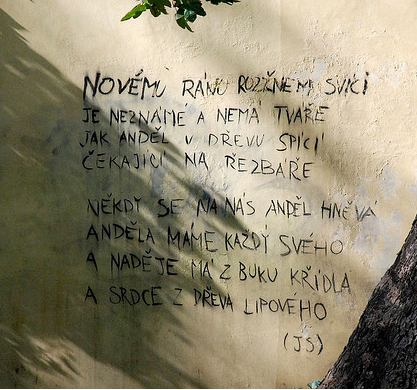 NOVÉMU RÁNU ROZŽNEM SVÍCI
JE NEZNÁMÉ A NEMÁ TVÁŘE
JAK ANDĚL V DŘEVU SPÍCÍ
ČEKAJÍCÍ NA ŘEZBÁŘE
NĚKDY SE NA NÁS ANDĚL HNĚVÁ
ANDĚLA MÁME KAŽDÝ SVÉHO
A NADĚJE MÁ Z BUKU KŘÍDLA
A SRDCE Z DŘEVA LIPOVÉHO
(JS)